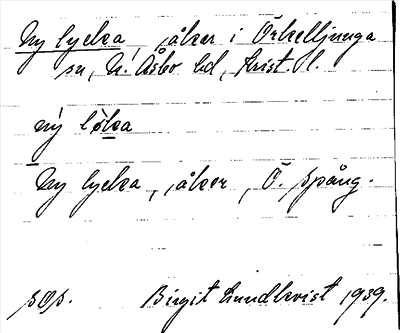 Ny lycka, åker i Örkelljunga
sn, N. Åsbo hd, Krist. l.
ny´ løka
Ny lycka, åker, Ö. Spång.
sos.    Birgit Lundkvist 1939.